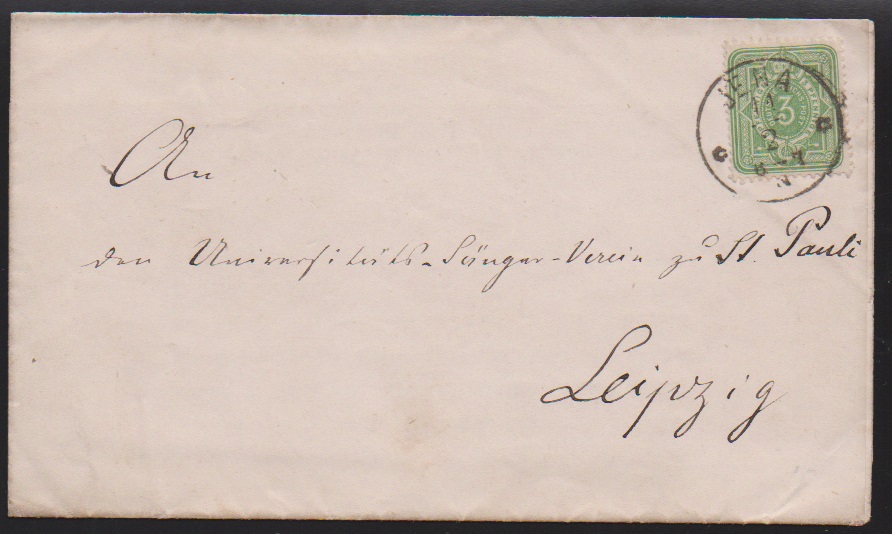 An
den Universitäts-Sänger-Verein zu St. Pauli
Leipzig
JENA
3